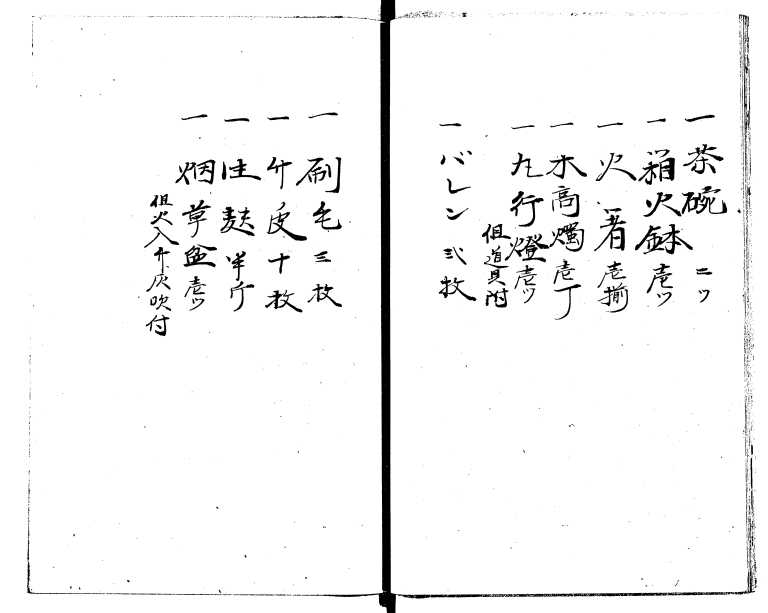 一 茶碗 二ツ
一 箱火鉢 壱ツ
一 火箸 壱揃
一 木高燭 壱丁
一 丸行燈 壱ツ
但道具附
一 バレン 弐枚
一 刷毛 三枚
一 竹皮 十枚
一 生麩 半斤
一 烟草盆 壱ツ
但火入竹灰吹付